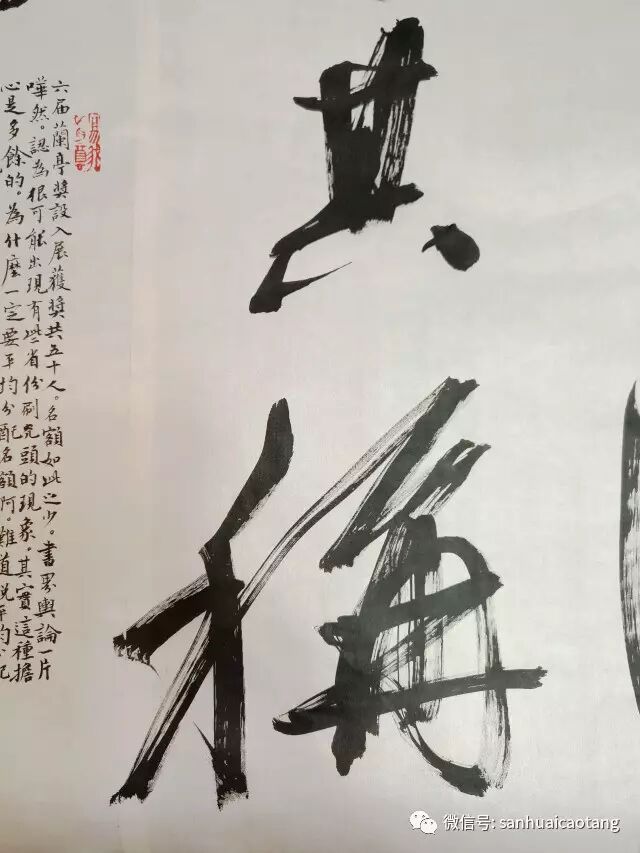 其
稱
六届蘭亭奬設入展獲奬共五十人。名額如此之少。書界輿論一片
嘩然。認為很可能出現有些省份剃光頭的現象。其實這種擔
心是多餘的。為什麼一定要平均分配名額阿。難道説平均分配
微信号: sanhuaicaotang